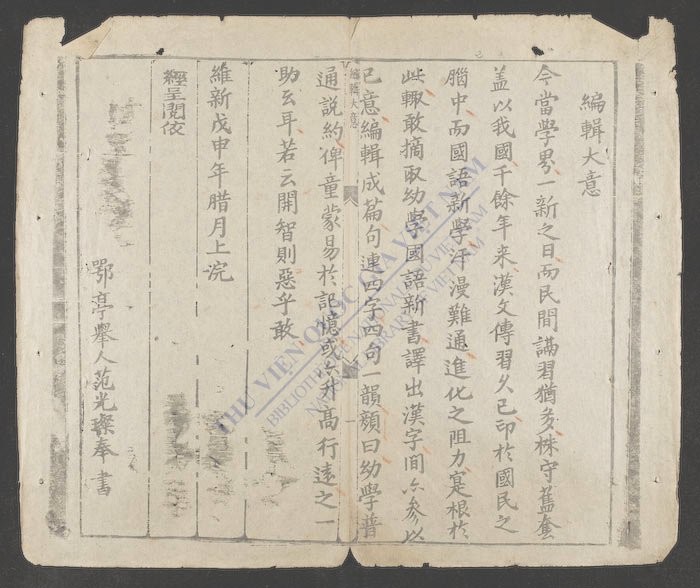 編輯大意
今當學界一新之日而民間講習猶多株守舊套
盖以我國千餘年来漢文傳習久已印於國民之
腦中而國語新學汗漫難通進化之阻力寔根於
此輒敢摘取幼學國語新書譯出漢字间亦参以
己意編輯成篇句連四字四句一韻顏曰幼學普
通説約俾童蒙易於記憶或亦升髙行逺之一
助云耳若云開智則惡乎敢
維新戊申年腊月上浣
經呈閱依
鄂亭舉人范光璨奉書
編輯大意
一
THƯ VIỆN QUỐC GIA VIỆT NAM
BIBLIOTHÈQUE NATIONALE DU VIETNAM
NATIONAL LIBRARY OF VIETNAM